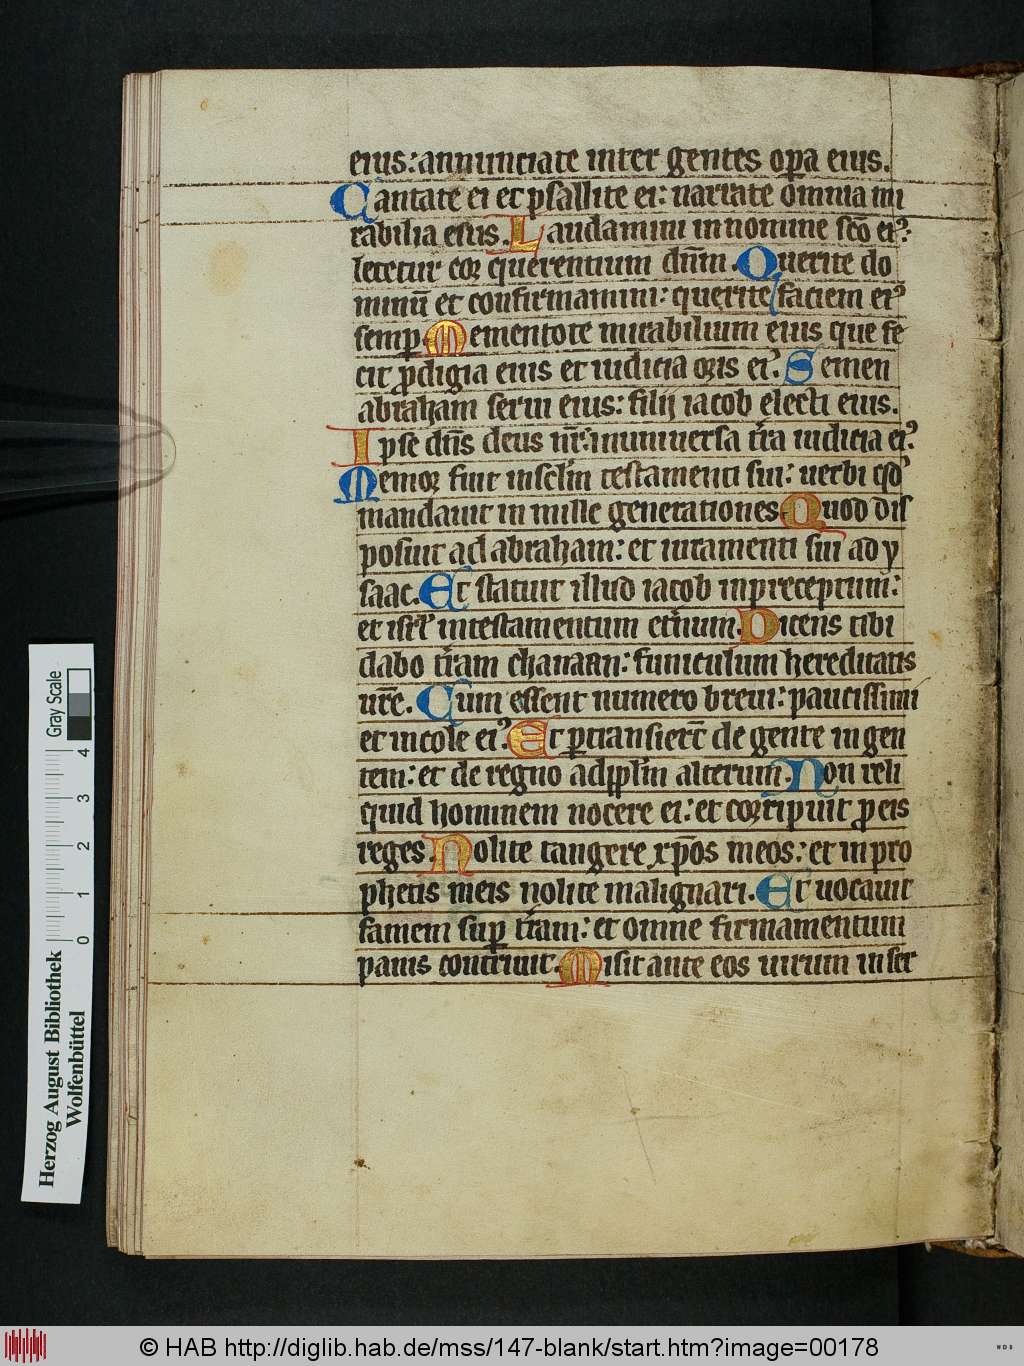 eius: annunciate inter gentes opa eius.
Cantate ei et psallite ei: narrate omnia mi
rabilia eius. Laudamini in nomine sco ei9:
letetur cor querentium dnm. Querite do
minu et confirmamini: querite faciem ei9
semp. Mementote mirabilium eius que fe
cit prodigia eius et iudicia oris ei9. Semen
abraham serui eius: filij iacob electi eius.
Ipse dns deus nr: in uniuersa tra iudicia ei9.
Memor fuit inseclm testamenti sui: uerbi qd
mandauit in mille generationes. Quod dis
posuit ad abraham: et iuramenti sui ad y
saac. Et statuit illud iacob in preceptum:
et isrl in testamentum etnum. Dicens tibi
dabo tram chanaan: funiculum hereditatis
ure. Cum essent numero breui: paucissimi
et incole ei9. Et ptransiert de gente in gen
tem: et de regno ad pplm alterum. Non reli
quid hominem nocere ei: et corripuit p eis
reges. Nolite tangere xpos meos: et in pro
phetis meis nolite malignari. Et uocauit
famem sup tram: et omne firmamentum
panis contriuit. Misit ante eos uirum in ser
Herzog August Bibliothek
Wolfenbüttel
0 1 2 3 4
Gray Scale
© HAB http://diglib.hab.de/mss/147-blank/start.htm?image=00178